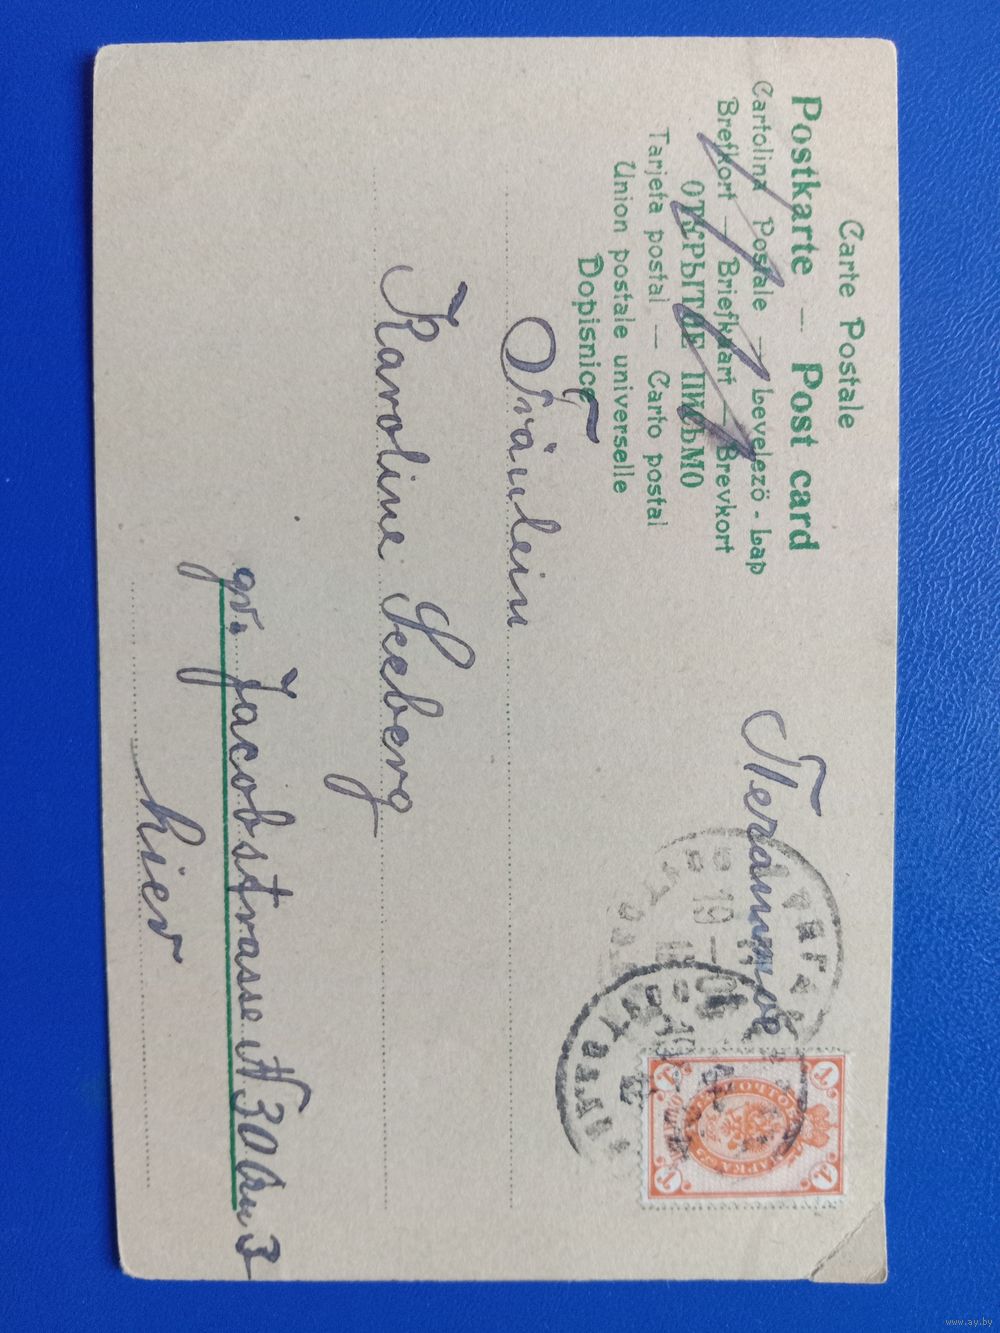 Carte Postale
Postkarte — Post card
Cartolina Postale — Levelező-Lap
Brefkort — Briefkaart — Brevkort
ОТКРЫТОЕ ПИСЬМО
Tarjeta postal — Carto postal
Union postale universelle
Dopisnice
Fräulein
Karoline Seeberg
gr. Jacobstrasse N 30
hier
РИГА
19
1
1
www.ay.by